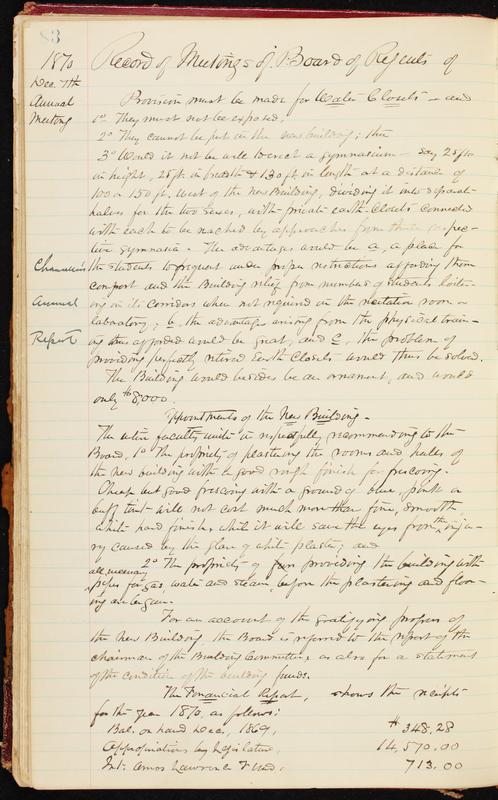 83
1870 Record of Meetings of Board of Regents of
Dec. 7th
Annual Provision must be made for Water Closets — and
Meeting 1º They must not be exposed.
2º They cannot be put in the new building; then
3º Would it not be well to erect a gymnasium — say 25 ft
in height, 25 ft. in breadth & 130 ft. in length at a distance of
100 or 150 ft. west of the New Building, dividing it into separate
halves for the two sexes, with private earth-closets connected
with each to be reached by approaches from their respec-
tive gymnasia. The advantages would be a, a place for
Chancellor's the students to frequent under proper restrictions affording them
comfort and the Building relief from numbers of students loiter-
Annual ing in its corridors when not required in the recitation room or
laboratory; b, the advantages arising from the physical train-
Report ing thus afforded would be great, and c, the problem of
providing perfectly retired Earth Closets would thus be solved.
The Building would besides be an ornament, and would
only $8,000.
Appointments of the New Building —
The entire faculty unite in respectfully recommending to the
Board, 1º The propriety of plastering the rooms and halls of
the new building with a good rough finish for frescoing.
Cheap but good frescoing with a ground of blue, pink or
buff tint will not cost much more than fine, smooth,
white hard finish, while it will save the eyes from the inju-
ry caused by the glare of white plaster; and
2º The propriety of providing the building with
all necessary pipes for gas, water and steam, before the plastering and floor-
ing are begun.
For an account of the gratifying progress of
the New Building the Board is referred to the report of the
chairman of the Building Committee, as also for a statement
of the condition of the building funds.
The Financial Report, shows the receipts
for the year 1870, as follows:
Bal. on hand Dec., 1869, $348.28
Appropriations by Legislature, 14,570.00
Int. Amos Lawrence Fund, 713.00